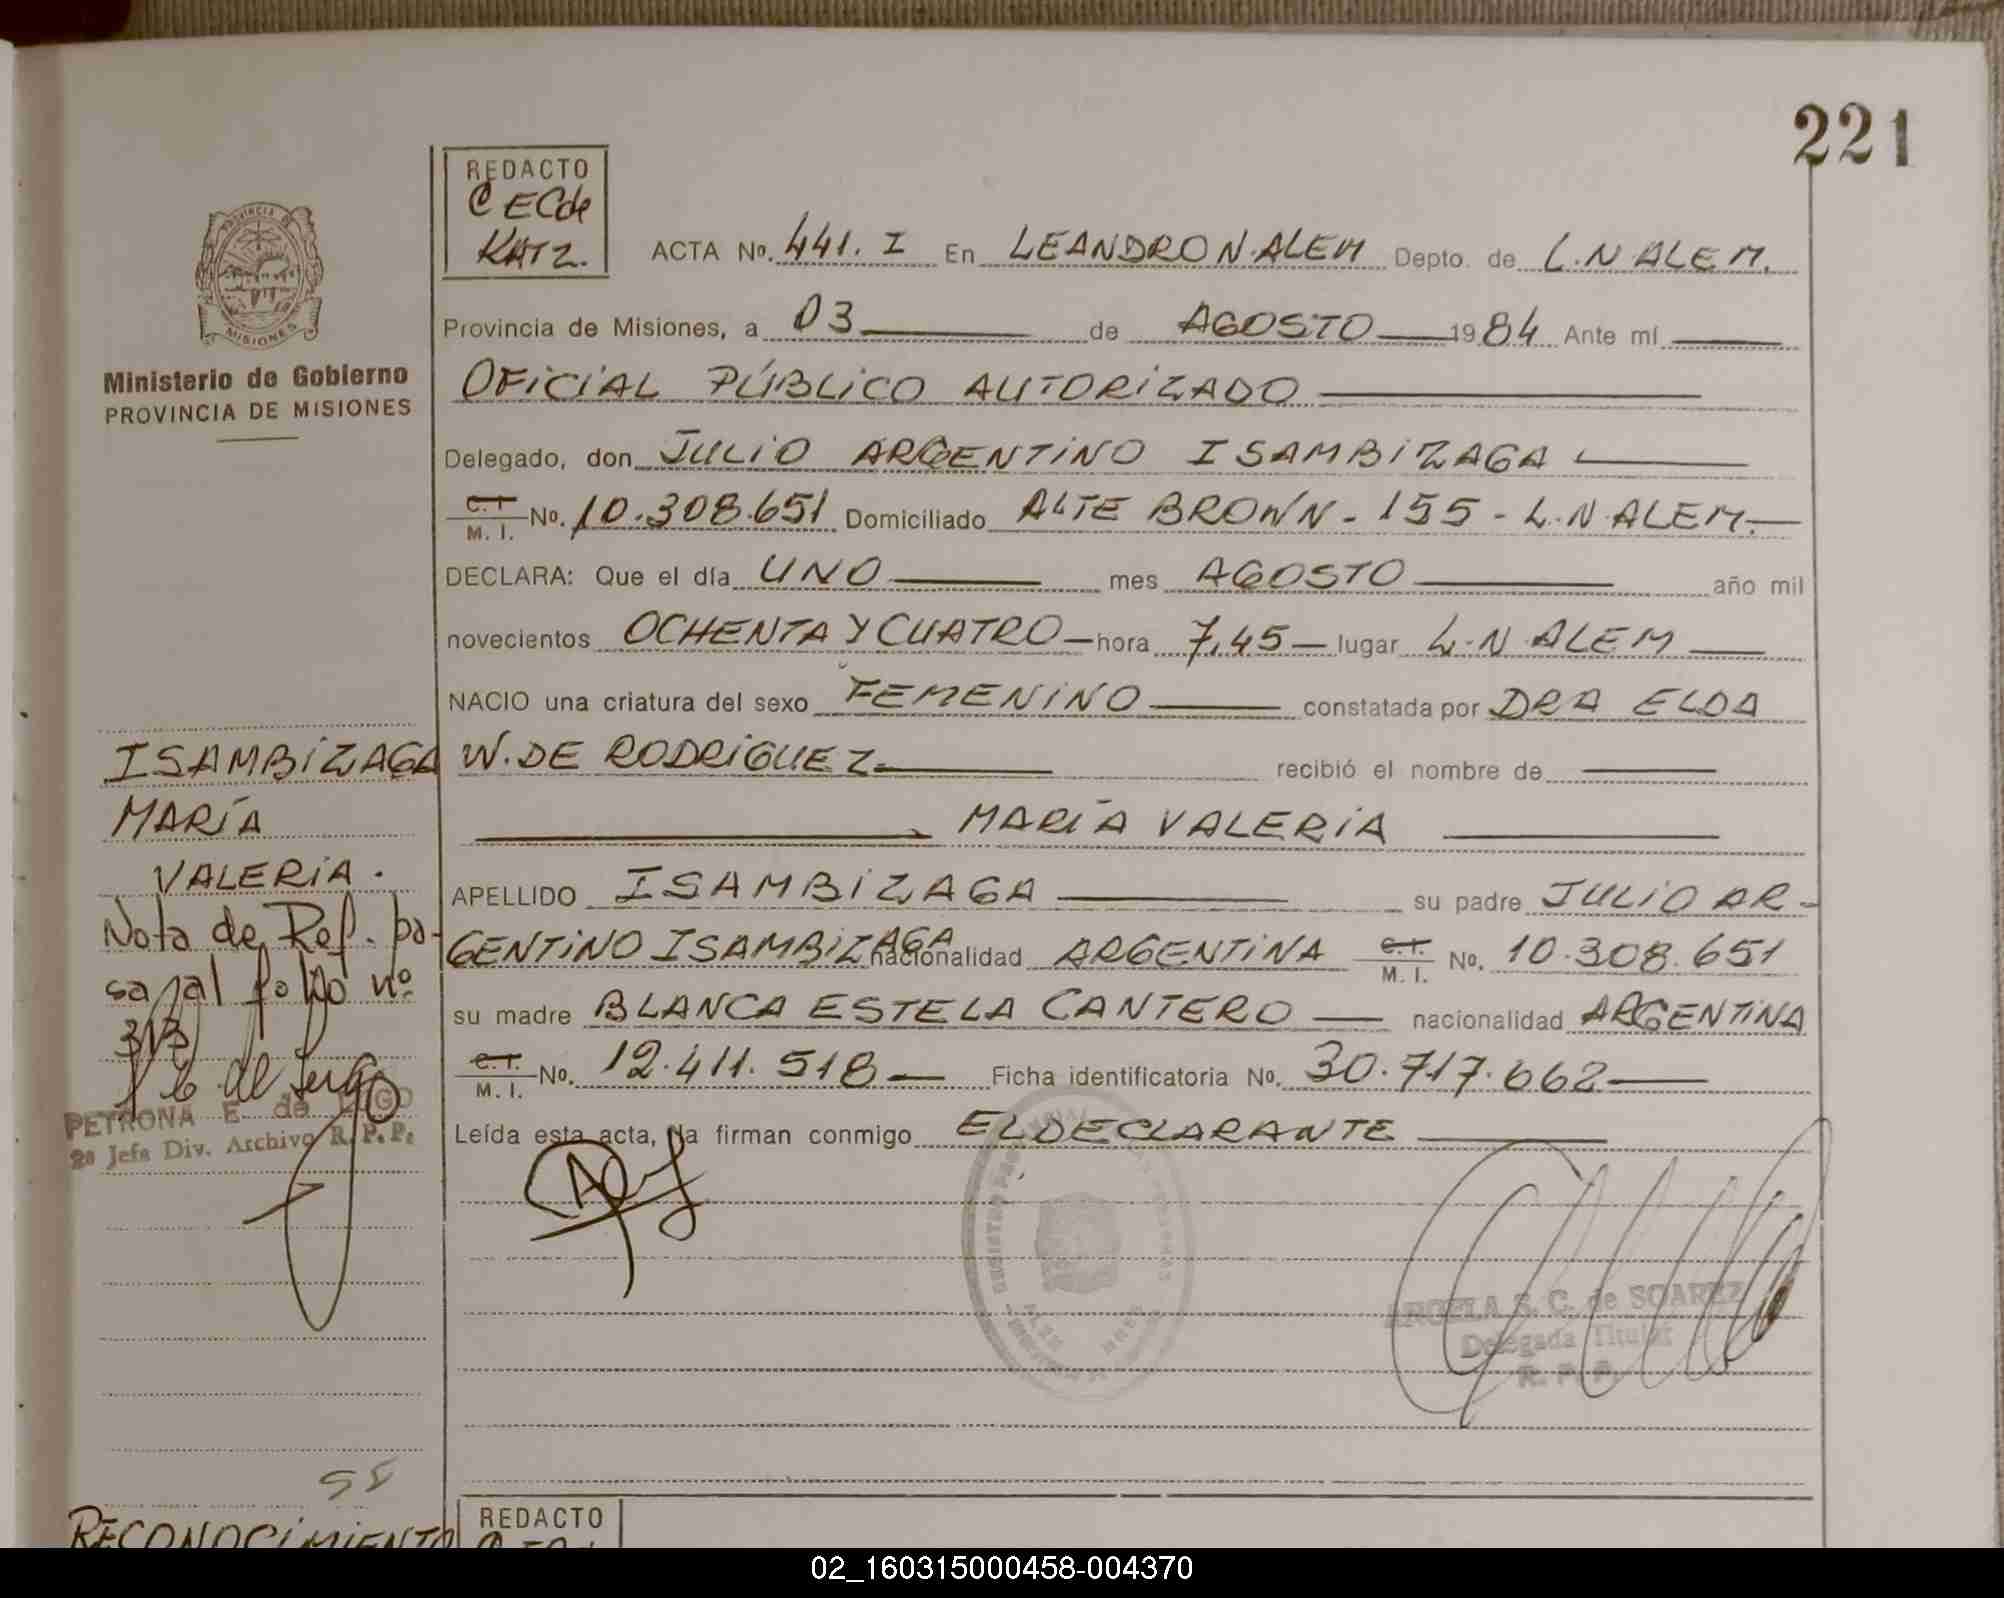 221
REDACTO
C EC de
KATZ.
PROVINCIA DE
MISIONES
Ministerio de Gobierno
PROVINCIA DE MISIONES
ACTA No. 441. I En LEANDRO N. ALEM Depto. de L. N ALEM.
Provincia de Misiones, a 03 de AGOSTO 1984 Ante mí
OFICIAL PÚBLICO AUTORIZADO
Delegado, don JULIO ARGENTINO ISAMBIZAGA
C. I. / M. I. No. 10.308.651 Domiciliado ALTE BROWN - 155 - L. N. ALEM.
DECLARA: Que el día UNO mes AGOSTO año mil
novecientos OCHENTA Y CUATRO hora 7,45 lugar L. N. ALEM
NACIO una criatura del sexo FEMENINO constatada por DRA ELDA
W. DE RODRIGUEZ recibió el nombre de
MARÍA VALERIA
APELLIDO ISAMBIZAGA su padre JULIO AR-
GENTINO ISAMBIZAGA nacionalidad ARGENTINA C. I. / M. I. No. 10.308.651
su madre BLANCA ESTELA CANTERO nacionalidad ARGENTINA
C. I. / M. I. No. 12.411.518 Ficha identificatoria No. 30.717.662
Leída esta acta, la firman conmigo EL DECLARANTE
ISAMBIZAGA
MARÍA
VALERIA.
Nota de Ref. pa-
sa al folio nº
313
PETRONA E de LUGO
2ª Jefa Div. Archivo R. P. P.
ANGELA S. C. de SOAREZ
Delegada Titular
R. P. P.
RECONOCIMIENTO
REDACTO
02_160315000458-004370